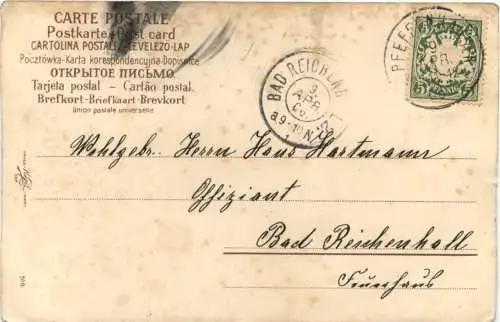 CARTE POSTALE
Postkarte-Post card
CARTOLINA POSTALE-LEVELEZO-LAP
Pocztówka-Karta korespondencyjna-Dopisnice
ОТКРЫТОЕ ПИСЬМО.
Tarjeta postal - Cartão postal.
Brefkort-Briefkaart-Brevkort
Union postale universelle
BAD REICHENH
9
APR
PFEFFENH
BAYERN
5 PFENNIG 5
Wohlgebr. Herrn Hans Hartmann
Offiziant
Bad Reichenhall